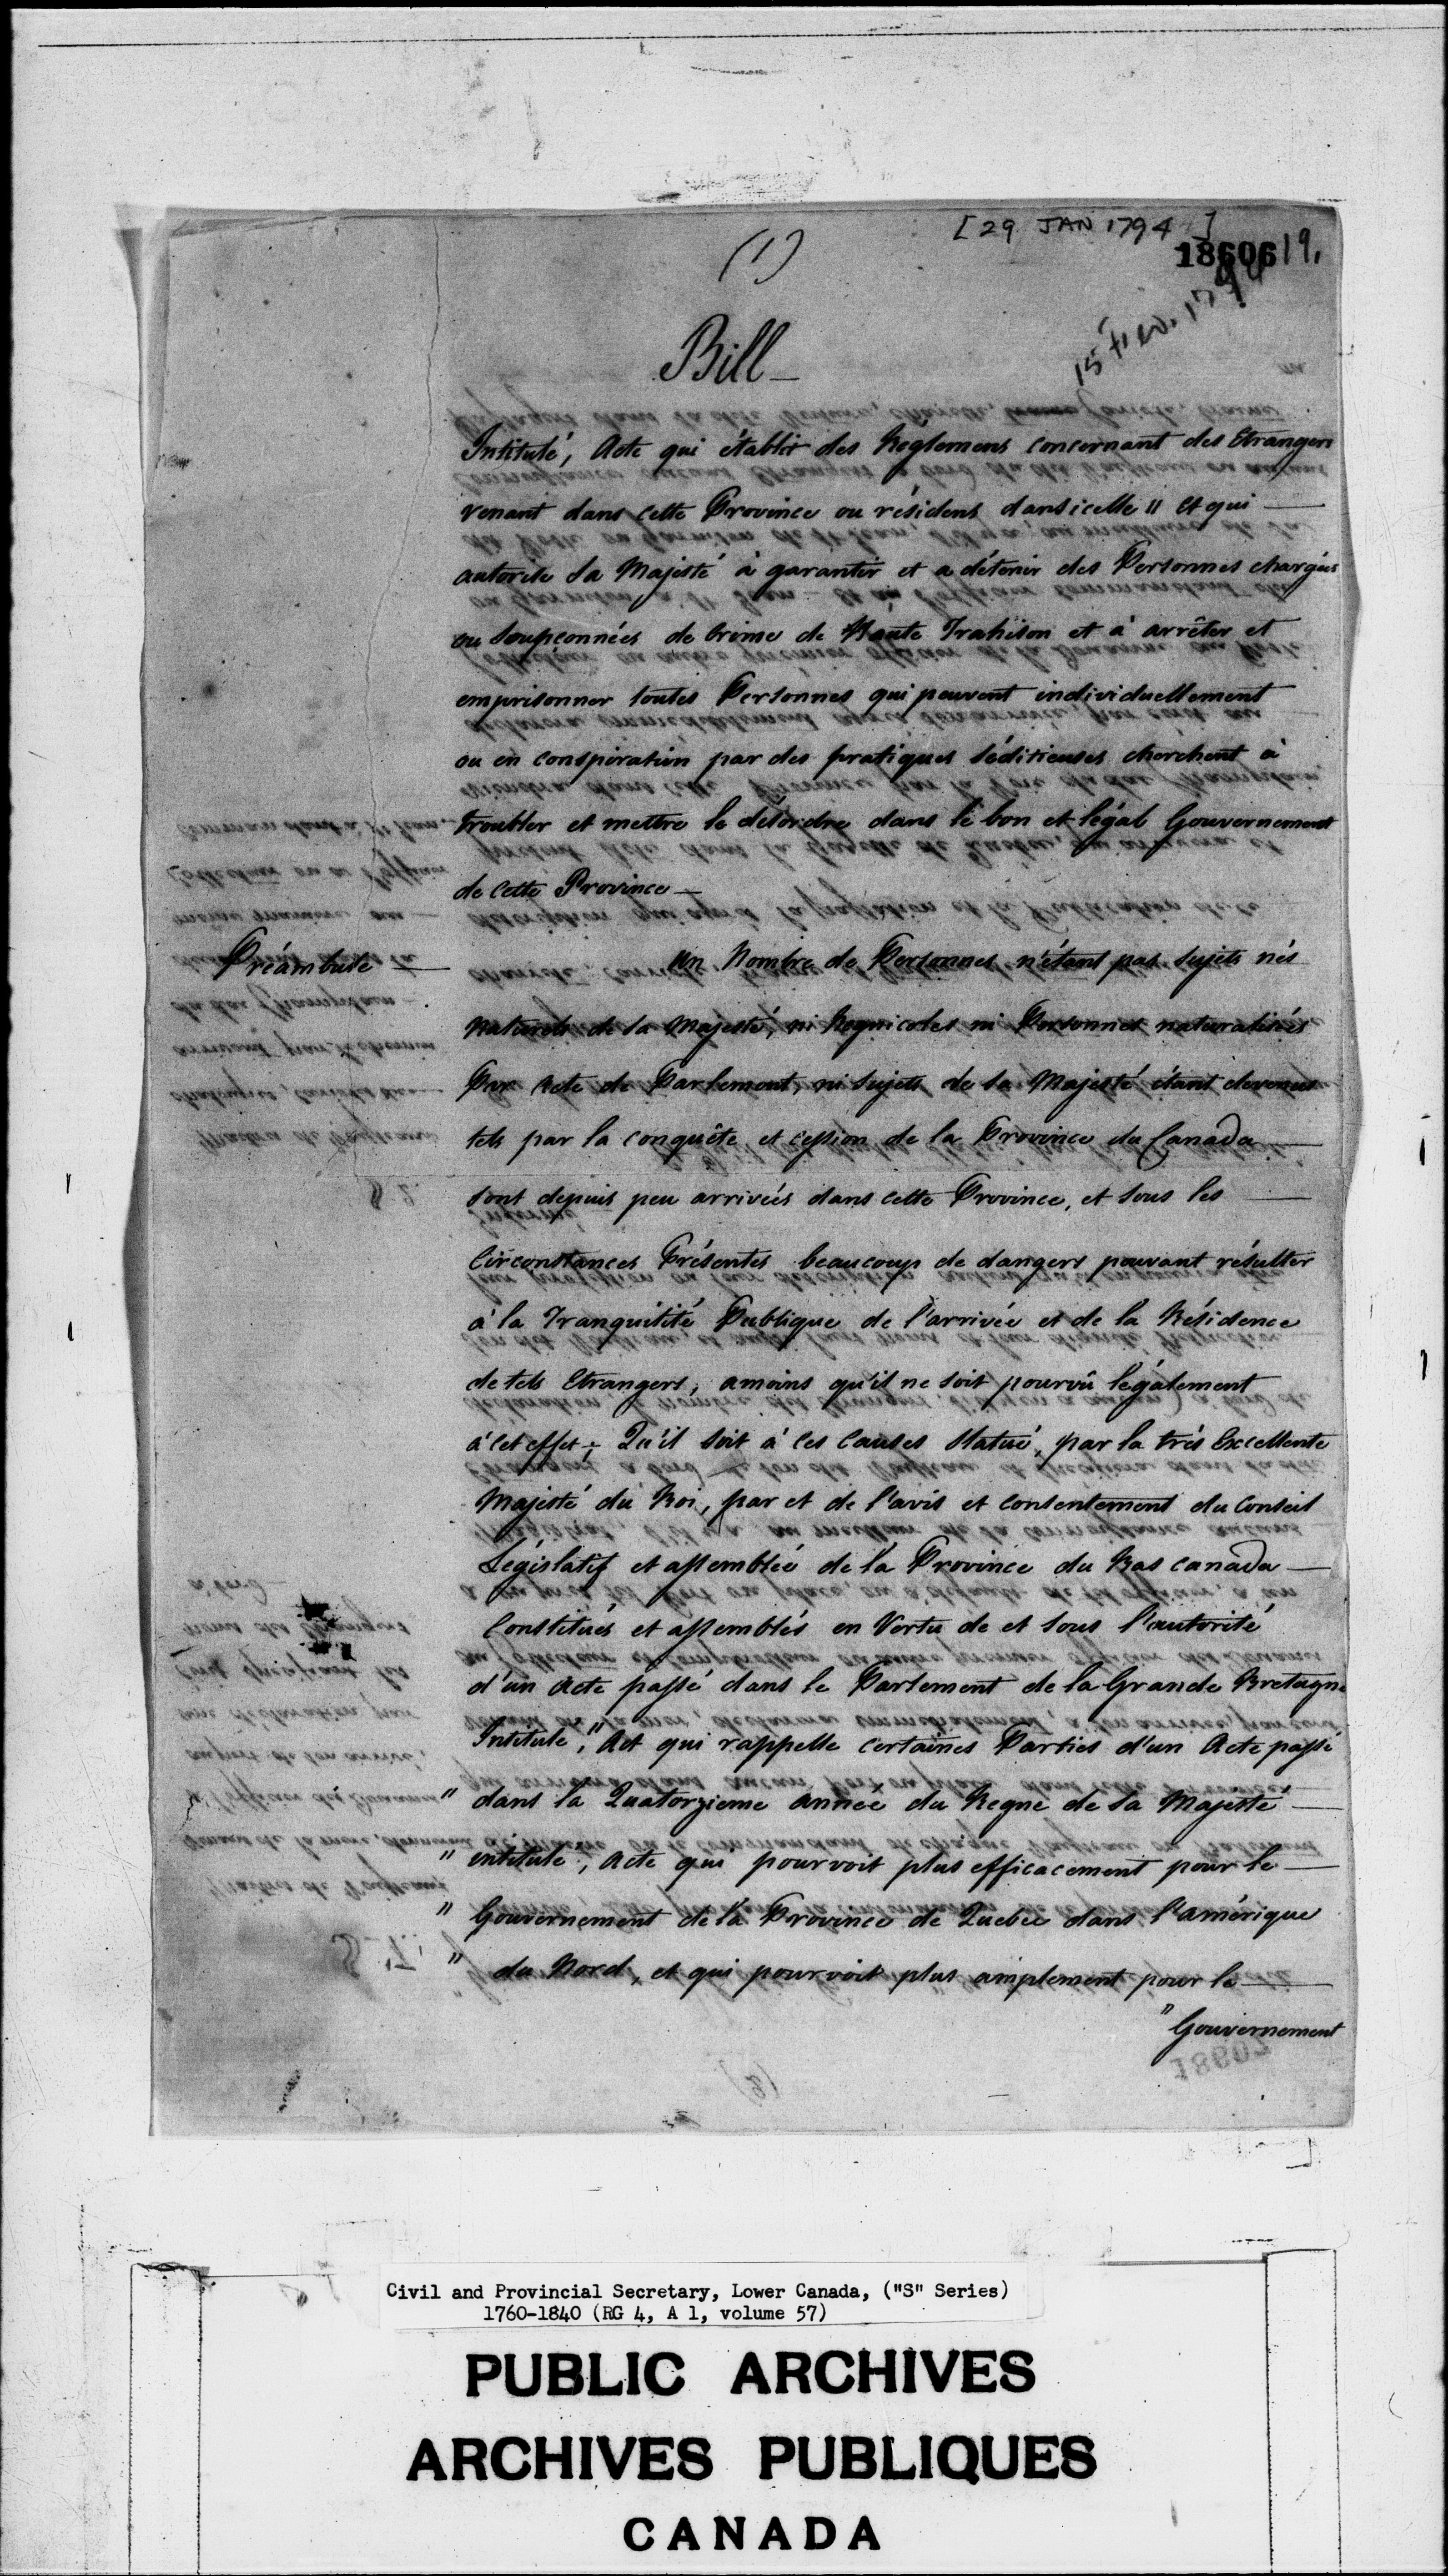 [29 JAN 1794]
(1)
18606 19,
15 Feb. 1794
Bill
Intitulé, Acte qui établit des Règlemens concernant des Etrangers
venant dans cette Province ou résidens dans icelle " et qui
autorise Sa Majesté à garantir et a détenir des Personnes chargées
ou soupçonnées de Crime de Haute Trahison et à arrêter et
emprisonner toutes Personnes qui peuvent individuellement
ou en conspiration par des pratiques séditieuses cherchent à
troubler et mettre le désordre dans le bon et légal Gouvernement
de cette Province —
Préambule — Un Nombre de Personnes n'étant pas Sujets nés
naturels de Sa Majesté, ni Regnicoles ni Personnes naturalisés
Par Acte de Parlement, ni Sujets de Sa Majesté étant devenus
tels par la conquête et cession de la Province du Canada
sont depuis peu arrivées dans cette Province, et sous les
Circonstances Présentes beaucoup de dangers pouvant résulter
à la Tranquilité Publique de l'arrivée et de la Résidence
de tels Etrangers, amoins qu'il ne soit pourvû légalement
à cet effet; Qu'il soit à ces Causes Statué, par la très Excellente
Majesté du Roi, par et de l'avis et consentement du Conseil
Législatif et assemblée de la Province du Bas Canada
Constitués et assemblés en Vertu de et sous l'autorité
d'un Acte passé dans le Parlement de la Grande Bretagne
Intitulé, "Act qui rappelle certaines Parties d'un Acte passé
" dans la Quatorzieme année du Regne de Sa Majesté
" intitulé, Acte qui pourvoit plus efficacement pour le
" Gouvernement de la Province de Quebec dans l'amérique
" du Nord, et qui pourvoit plus amplement pour le
" Gouvernement
18607
(2)
Civil and Provincial Secretary, Lower Canada, ("S" Series)
1760-1840 (RG 4, A 1, volume 57)
PUBLIC ARCHIVES
ARCHIVES PUBLIQUES
CANADA